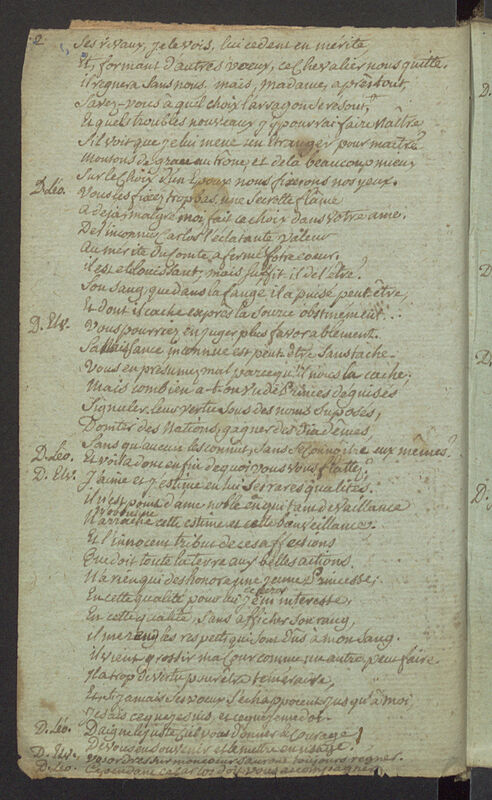 2
Ses rivaux, je le vois, lui cedent en mérite,
Et, formant d'autres voeux, ce Chevalier nous quitte.
il regnera sans nous. mais, madame, après tout,
Savez-vous à quel choix l'arragon se resout,
Et quels troubles nouveaux j'y pourrai faire naître
S'il voit que je lui mene un Etranger pour maître?
montons de grace au trône; et de là beaucoup mieux
Sur le choix d'un Epoux nous fixerons nos yeux.
D. Léo. Vous les fixez trop bas. une Secrette flâme
A déja malgré moi fait ce choix dans votre ame.
De l'inconnu Carlos l'éclatante valeur
Au mérite du Comte a fermé votre coeur.
il est eblouissant, mais suffit il de l'être?
Son Sang, que dans la fange il a puisé peut être,
Et dont il cache exprès la Source obstinément...
D. Elv. Vous pourriez en juger plus favorablement.
Sa naissance inconnue est peut être Sans tache.
Vous en présumez mal parce qu'il nous la cache;
Mais combien a-t-on vu de Princes déguisés
Signaler leur vertu Sous des noms Supposés,
Domter des Nations, gagner des Diadêmes,
Sans qu'aucun les connut, Sans se connoitre eux mêmes?
D. Léo. Et voilà donc enfin de quoi vous vous flattez?
D. Elv. J'aime et j'estime en lui Ses rares qualités.
il n'est point d'ame noble en qui tant de vaillance
N'arrache cette estime et cette bienveillance.
Et l'innocent tribut de ces affections
Que doit toute la terre aux belles actions
N'a rien qui deshonore une jeune Princesse;
En cette qualité pour lui je m'interesse;
En cette qualité, Sans afficher Son rang,
il me rend les respects qui Sont dûs à mon Sang.
il vient grossir ma Cour comme un autre peut faire
il a trop de vertu pour être téméraire,
Et Si jamais Ses voeux S'echappoient jusqu'à moi,
je sais ce que je suis, et ce que je me doi.
D. Léo. Daigne le juste Ciel vous donner le Courage
De vous en Souvenir et le mettre en usage!
D. Elv. Vos ordres Sur mon coeur Sauront toujours regner.
D. Léo. Cependant ce Carlos doit vous accompagner,